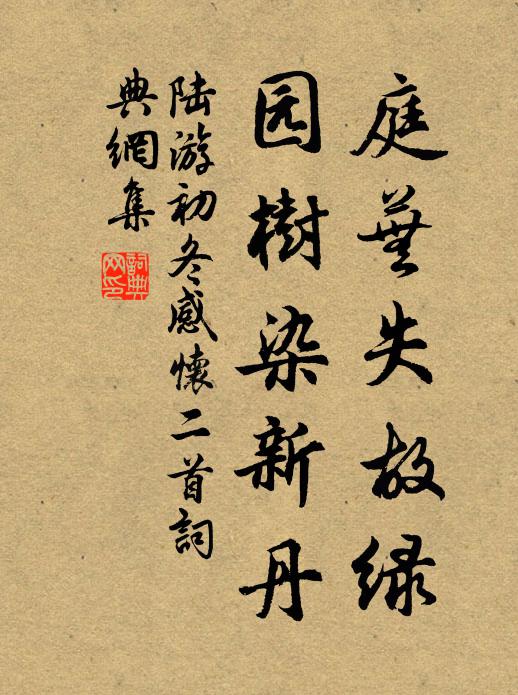 庭芜失故绿
园樹染新丹
陆游初冬感懷二首詞
典網集
詞典网印